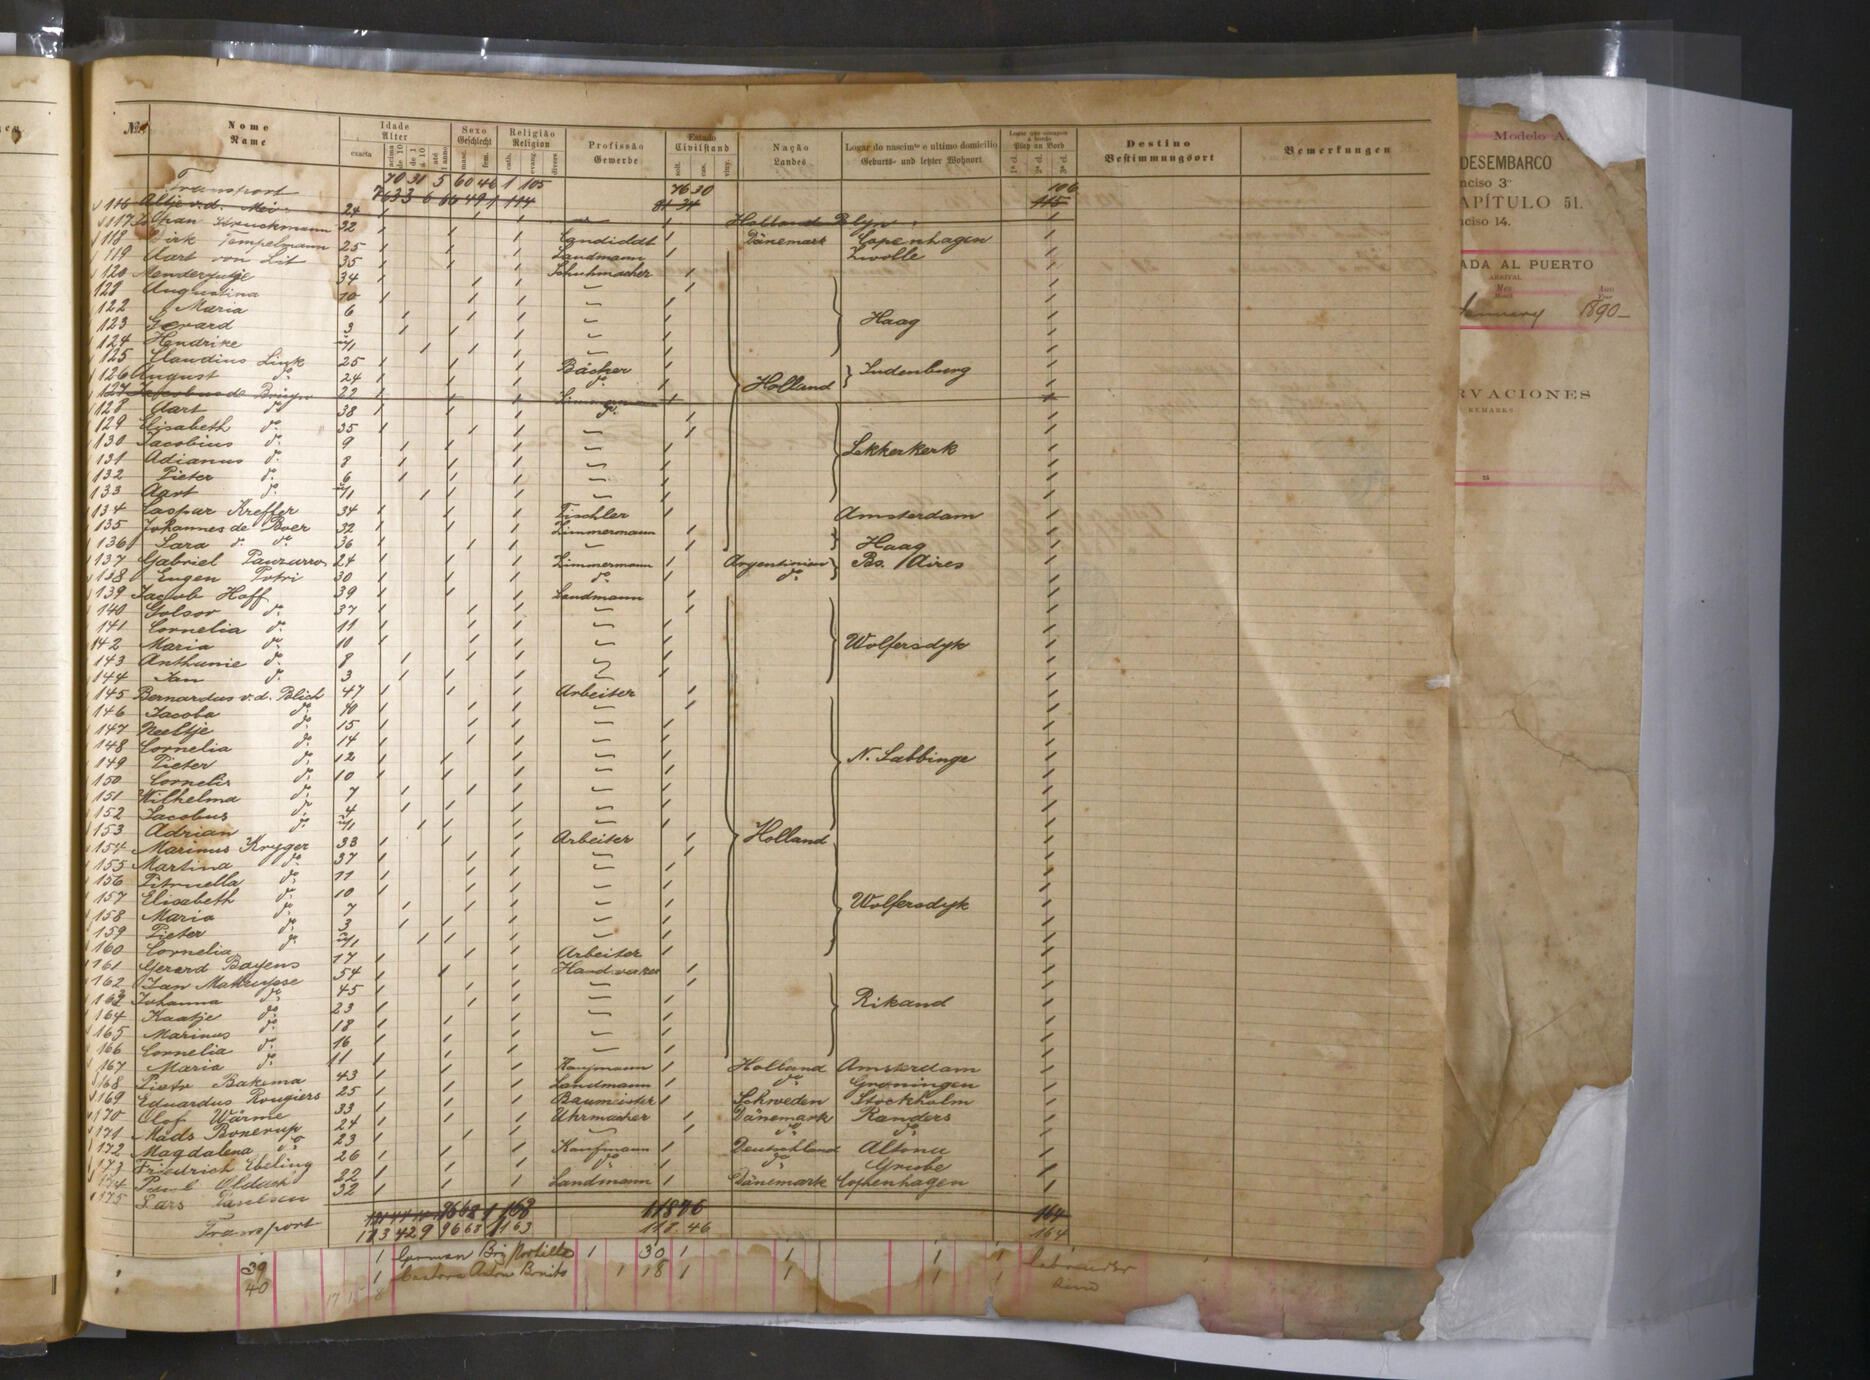 №
Nome
Name
Idade
Alter
exacta
acima de 10
de 1 a 10
até 1 anno
Sexo
Geschlecht
masc.
fem.
Religião
Religion
cath.
evang.
divers
Profissão
Gewerbe
Estado
Civilstand
solt.
cas.
viuv.
Nação
Landes
Logar do nascimto e ultimo domicilio
Geburts- und letzter Wohnort
Logar que occupou a bordo
Platz an Bord
1a cl.
2a cl.
3a cl.
Destino
Bestimmungsort
Bemerkungen
Transport 70 31 5 60 46 1 105 76 30 106
116 Altje v. d. Mei 24 115
117 Struckmann 22 Holland
118 Dirk Tempelmann 25 Candidat Dänemark Copenhagen
119 Aart von Lit 35 Landmann Zwolle
120 34 Schuhmacher
121 Augustina 10
122 Maria 6
123 Gerard 3 Haag
124 Hendrike
125 Claudius Link 25 Bäcker
126 August do 24 do Holland Sudenburg
127 Jacobus de Bruyn 22 Zimmermann
128 Aart do 38 do
129 Elisabeth do 35
130 Jacobius do 9 Lekkerkerk
131 Adianus do 8
132 Pieter do 6
133 Aart do
134 Caspar Kreffer 34 Tischler Amsterdam
135 Johannes de Boer 32 Zimmermann
136 Sara do do 36 Haag
137 Gabriel 24 Zimmermann Argentinien Bs. Aires
138 Eugen Potri 30 do do
139 Jacob Hoff 39 Landmann
140 do 37
141 Cornelia do 11
142 Maria do 10 Wolfersdyk
143 Anthunie do 8
144 Jan do 3
145 Bernardus v. d. Blich 47 Arbeiter
146 Jacoba do 40
147 Neeltje do 15
148 Cornelia do 14
149 Pieter do 12 N. Sabbinge
150 Cornelis do 10
151 Wilhelma do 7
152 Jacobus do 4
153 Adrian do
154 Marinus Kryger 33 Arbeiter Holland
155 Martina do 37
156 Pitruella do 11
157 Elisabeth do 10
158 Maria do 7 Wolfersdyk
159 Pieter do 3
160 Cornelia do
161 Gerard Bayens 17 Arbeiter
162 Jan 54
163 Johanna do 45
164 Kaatje do 23 Rikand
165 Marinus do 18
166 Cornelia do 16
167 Maria do 11
168 Pietr Bakema 43 Kaufmann Holland Amsterdam
169 Eduardus Rougiers 25 Landmann do Groningen
170 Olof Wärme 33 Baumeister Schweden Stockholm
171 Mads Bonerup 24 Uhrmacher Dänemark Randers
172 Magdalena do 23 do do
173 Friedrich Ebeling 26 Kaufmann Deutschland Altona
174 Paul 22 do do Grube
175 Lars Paulsen 32 Landmann Dänemark Copenhagen
164
Transport 113 42 9 96 68 1 163 118 46 164
39 1 German 1 30 1 1 1 1
40 1 1 18 1 1 1 1
Modelo A
DESEMBARCO
nciso 3o
APÍTULO 51.
nciso 14.
ADA AL PUERTO
ARRIVAL
Mes
Month
Año
Year
January 1890
RVACIONES
REMARKS